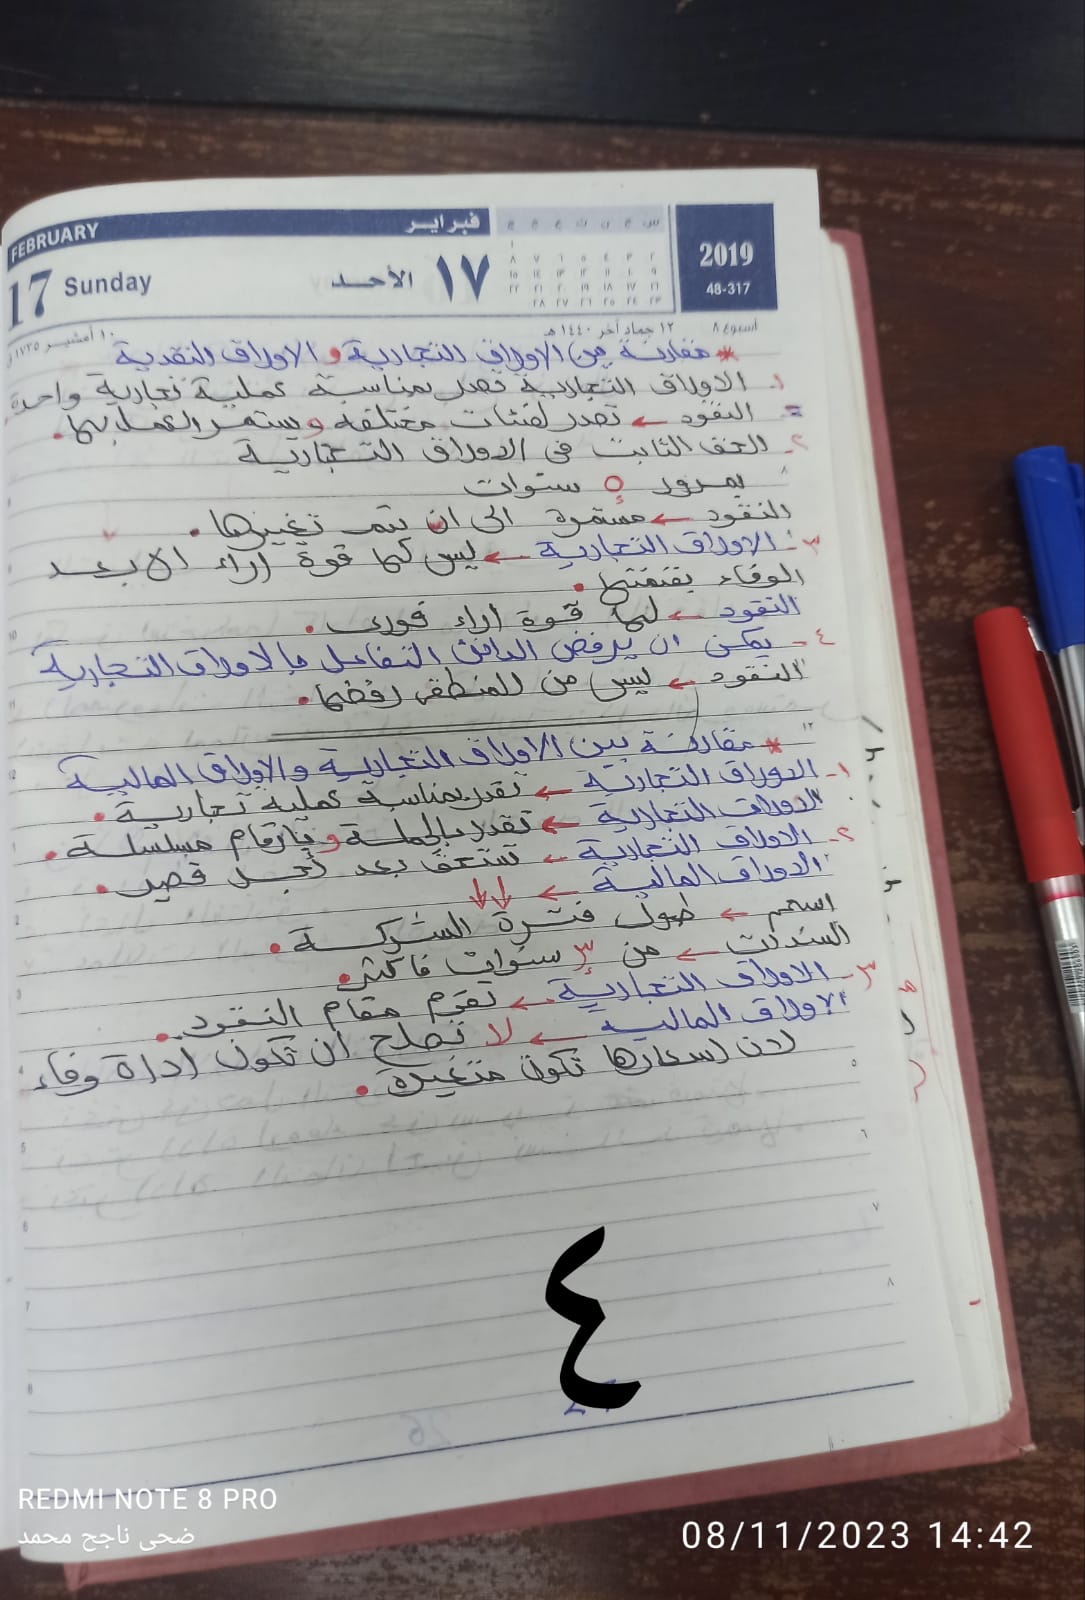 FEBRUARY فبراير
17 Sunday الأحد ١٧
2019
48-317
أسبوع ٨ ١٢ جماد آخر ١٤٤٠ هـ ١٠ أمشير ١٧٣٥ ق
* مقارنة بين الاوراق التجارية و الاوراق النقدية
١. الاوراق التجارية تصدر بمناسبة عملية تجارية واحدة
= النقود ← تصدر لفئات مختلفه ويستمر العمل بها.
٢- الحق الثابت فى الاوراق التجارية
بمرور ٥ سنوات
النقود ← مستمرة الى ان يتم تغييرها.
٣- الاوراق التجارية ← ليس لها قوة ابراء الا بعد
الوفاء بقيمتها.
النقود ← لها قوة ابراء فورى.
٤- يمكن ان يرفض الدائن التعامل بالاوراق التجارية
النقود ← ليس من المنطقى رفضها.
* مقارنة بين الاوراق التجارية والاوراق المالية
١- الاوراق التجارية ← تصدر بمناسبة عملية تجارية.
الاوراق التجارية ← تصدر بالجملة وبأرقام مسلسلة.
٢- الاوراق التجارية ← تستحق بعد أجل قصير.
الاوراق المالية ← ↓↓
اسهم ← طول فترة الشركة.
السندات ← من ٣ سنوات فأكثر.
٣- الاوراق التجارية ← تقوم مقام النقود.
الاوراق المالية ← لا تصلح ان تكون اداة وفاء
لان اسعارها تكون متغيرة.
٤
26
REDMI NOTE 8 PRO
ضحى ناجح محمد
08/11/2023 14:42